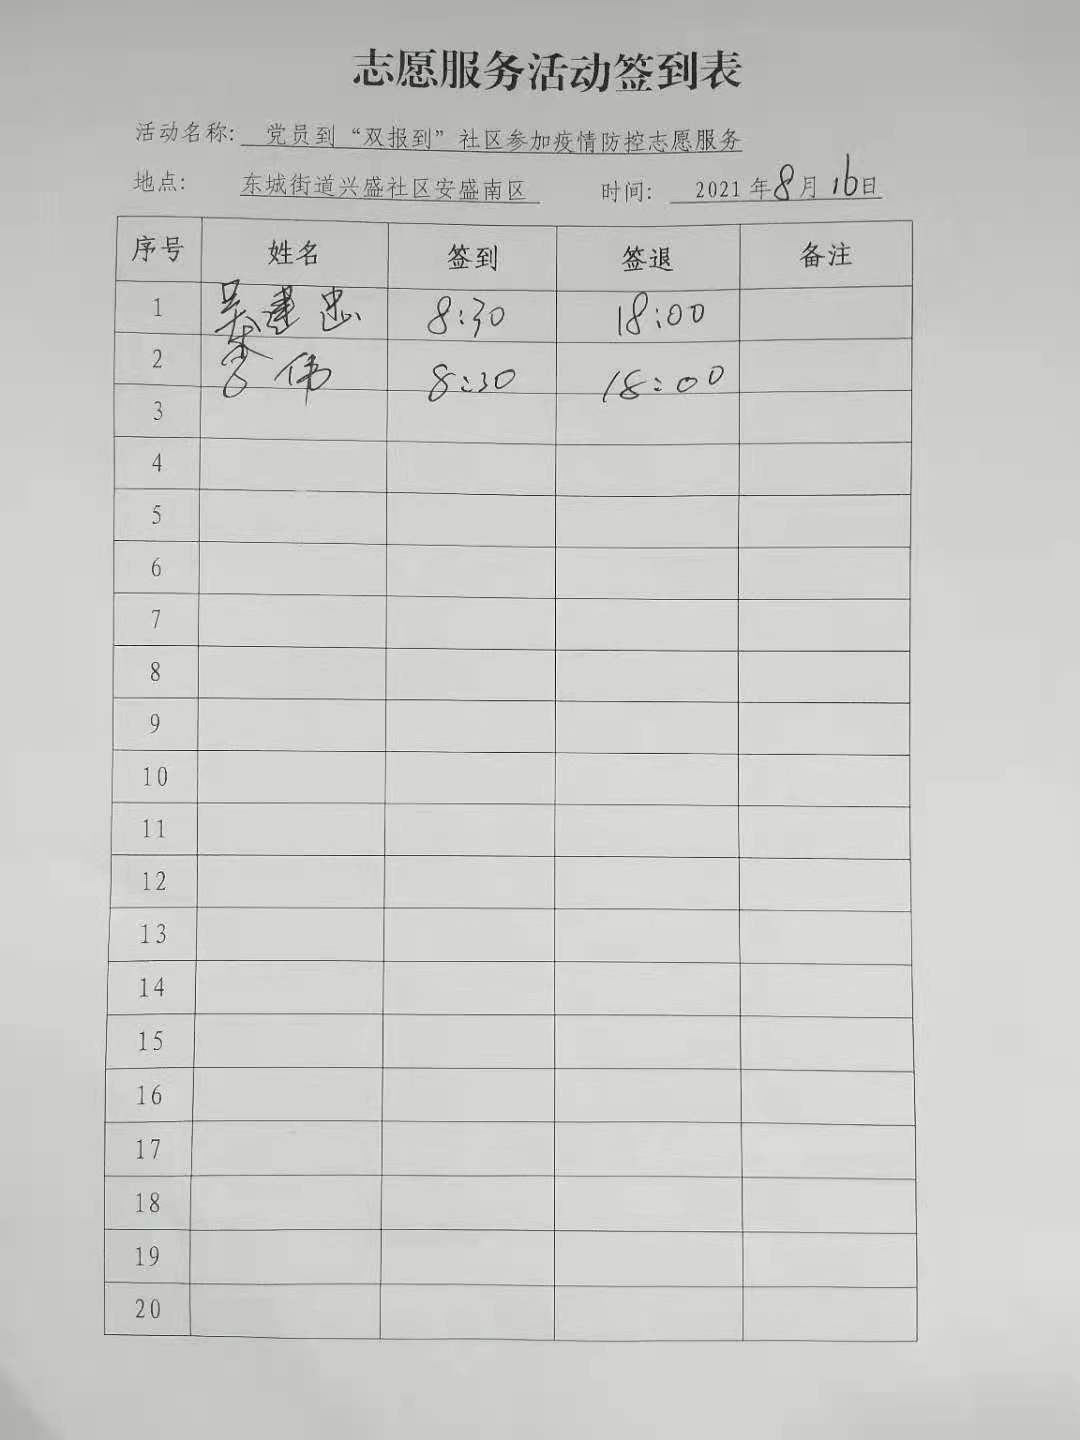 志愿服务活动签到表
活动名称: 党员到“双报到”社区参加疫情防控志愿服务
地点: 东城街道兴盛社区安盛南区 时间: 2021年8月16日
序号 姓名 签到 签退 备注
1 吴建忠 8:30 18:00
2 伟 8:30 18:00
3
4
5
6
7
8
9
10
11
12
13
14
15
16
17
18
19
20